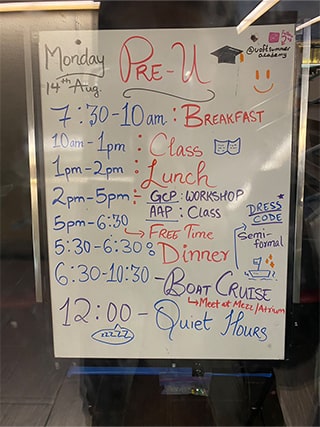 Monday
14th Aug.
PRE-U
@uoftsummer
academy
7:30-10am: BREAKFAST
10am-1pm : Class
1pm-2pm : Lunch
2pm-5pm : GCP: WORKSHOP
AAP: Class
DRESS
CODE
Semi-
formal
5pm-6:30
→ FREE Time
5:30-6:30: Dinner
6:30-10:30-BOAT CRUISE
→ Meet at Mezz/Atrium
12:00- Quiet Hours
zzZZ